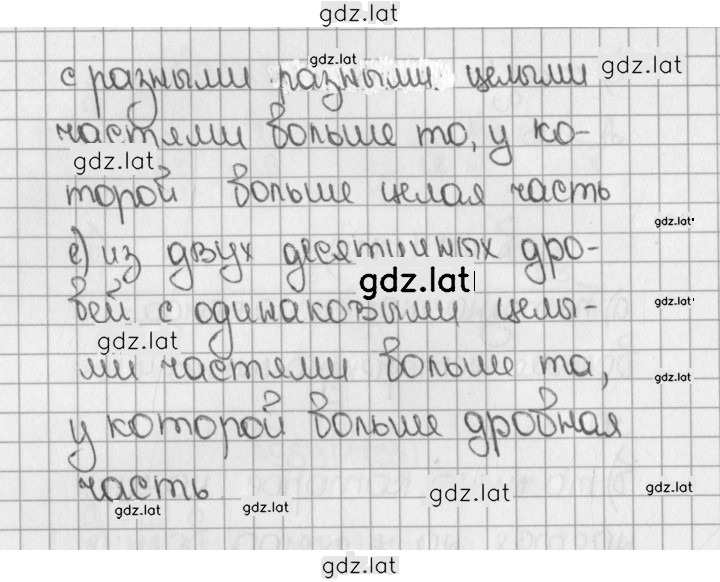 gdz.lat
gdz.lat
с разными разными целыми gdz.lat
частями больше то, у ко-
gdz.lat
торой больше целая часть
gdz.lat
е) из двух десятичных дро-
gdz.lat
бей с одинаковыми целы- gdz.lat
gdz.lat
ми частями больше та,
gdz.lat
у которой больше дробная
часть
gdz.lat gdz.lat gdz.lat gdz.lat
gdz.lat